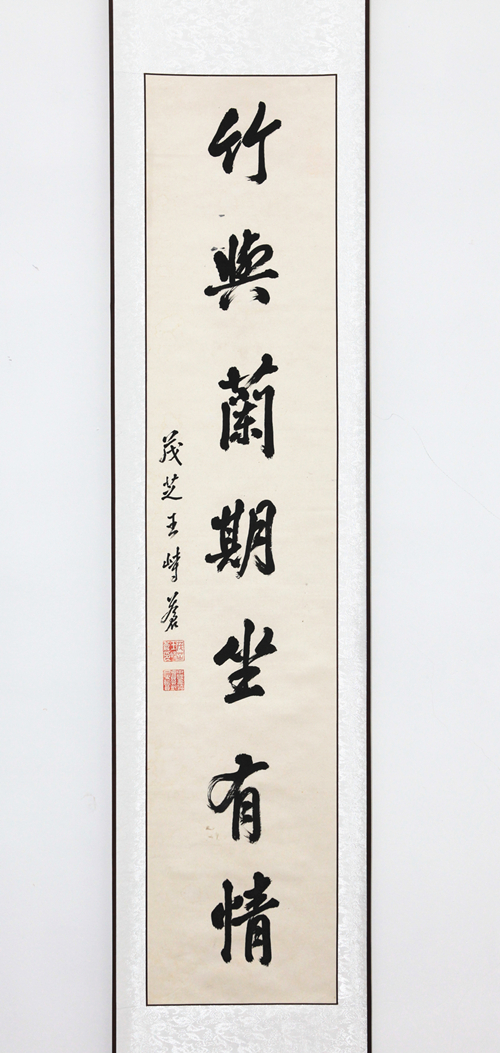 竹與蘭期坐有情
茂芝王峙蒼